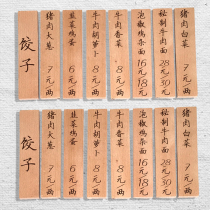 饺子
猪肉大葱 7元/两
韭菜鸡蛋 6元/两
牛肉胡萝卜 8元/两
牛肉香菜 8元/两
泡椒鸡杂面 16元 18元
秘制牛肉面 28元 30元
猪肉白菜 7元/两
饺子
猪肉大葱 7元/两
韭菜鸡蛋 6元/两
牛肉胡萝卜 8元/两
牛肉香菜 8元/两
泡椒鸡杂面 16元 18元
秘制牛肉面 28元 30元
猪肉白菜 7元/两